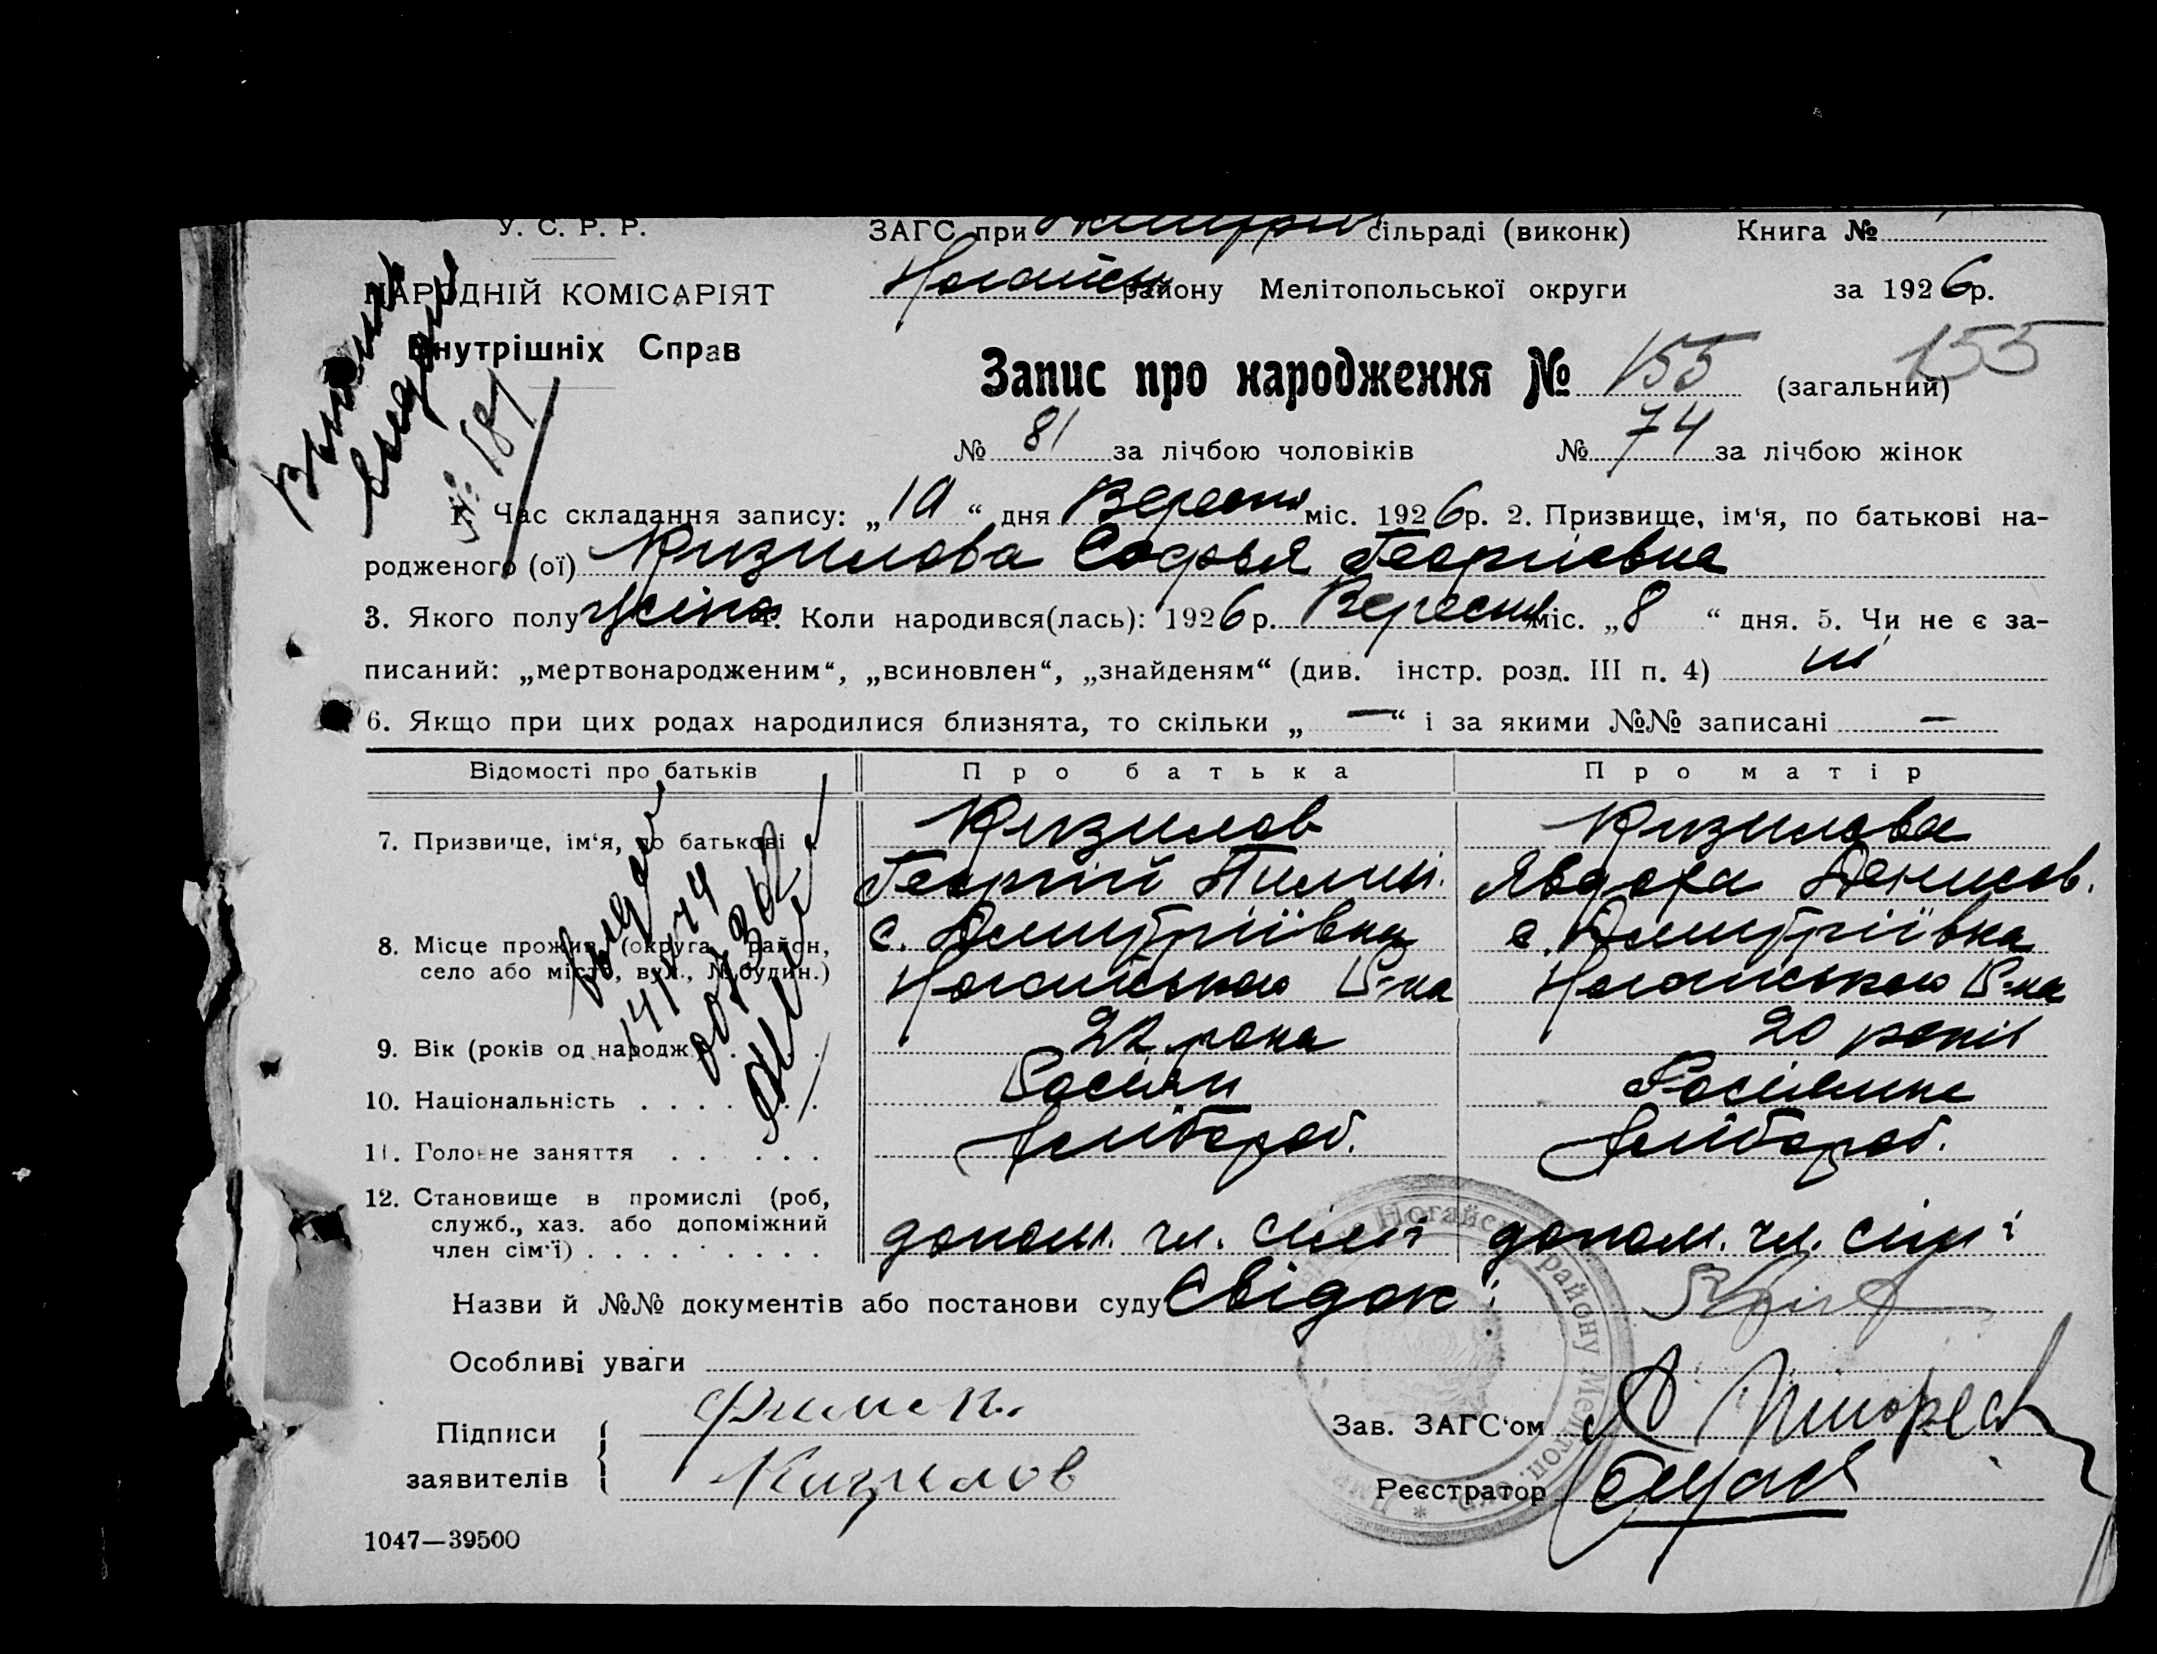 У. С. Р. Р.
НАРОДНІЙ КОМІСАРІЯТ
Внутрішніх Справ
ЗАГС при сільраді (виконк) Книга №
Ногайськ району Мелітопольської округи за 1926р.
Запис про народження № 155 (загальний) 155
№ 81 за лічбою чоловіків № 74 за лічбою жінок
1. Час складання запису: „10“ дня Вересня міс. 1926р. 2. Призвище, ім'я, по батькові на-
родженого (ої) Кизилова Софья Георгіевна
3. Якого полу жіноч 4. Коли народився(лась): 1926р. Вересня міс. „8“ дня. 5. Чи не є за-
писаний: „мертвонародженим“, „всиновлен“, „знайденям“ (див. інстр. розд. III п. 4) ні
6. Якщо при цих родах народилися близнята, то скільки „—“ і за якими №№ записані —
Відомості про батьків Про батька Про матір
7. Призвище, ім'я, по батькові Кизилов Кизилова
Георгій Пилип. Явдоха Денисов.
8. Місце прожив. (округа, район, с. Дмитріївка с. Дмитріївка
село або місто, вул., № будин.) Ногайського Р-на Ногайського Р-на
9. Вік (років од народж.) 22 рока 20 років
10. Національність Росіян Росіянка
11. Головне заняття Хлібороб. Хлібороб.
12. Становище в промислі (роб,
служб., хаз. або допоміжний допом. чл. сімї допом. чл. сімї
член сім'ї)
Назви й №№ документів або постанови суду Свідок:
Особливі уваги
Підписи
заявителів Кизилов
Зав. ЗАГС'ом
Реєстратор
1047—39500